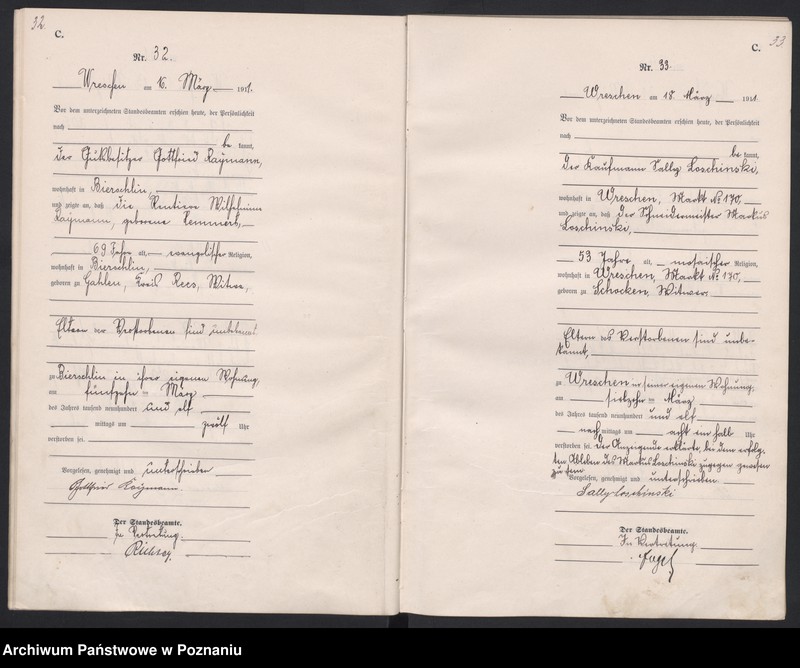 32.
C.
Nr. 32.
Wreschen am 16. März 1911.
Vor dem unterzeichneten Standesbeamten erschien heute, der Persönlichkeit
nach
be kannt,
der Gutsbesitzer Gottfried Raÿmann,
wohnhaft in Bierschlin,
und zeigte an, daß die Rentiere Wilhelmine
Raÿmann, geborene Lemmert,
69 Jahre alt, evangelischer Religion,
wohnhaft in Bierschlin,
geboren zu Gahlen, Kreis Rees, Witwe,
Eltern der Verstorbenen sind unbekannt
zu Bierschlin in ihrer eigenen Wohnung,
am fünfzehnten März
des Jahres tausend neunhundert und elf
mittags um zwölf Uhr
verstorben sei.
Vorgelesen, genehmigt und unterschrieben
Gottfried Raÿmann
Der Standesbeamte.
In Vertretung.
C.
33
Nr. 33.
Wreschen am 18. März 1911.
Vor dem unterzeichneten Standesbeamten erschien heute, der Persönlichkeit
nach
be kannt,
der Kaufmann Sally Loschinski,
wohnhaft in Wreschen, Markt No 170,
und zeigte an, daß der Schneidermeister Markus
Loschinski,
53 Jahre alt, mosaischer Religion,
wohnhaft in Wreschen, Markt No 170,
geboren zu Schocken, Witwer
Eltern des Verstorbenen sind unbe-
kannt,
zu Wreschen in seiner eigenen Wohnung,
am siebzehnten März
des Jahres tausend neunhundert und elf
nach mittags um acht ein halb Uhr
verstorben sei. Der Anzeigende erklärte, bei dem erfolg-
ten Ableben des Markus Loschinski zugegen gewesen
zu sein.
Vorgelesen, genehmigt und unterschrieben.
Sally Loschinski
Der Standesbeamte.
In Vertretung.
Archiwum Państwowe w Poznaniu